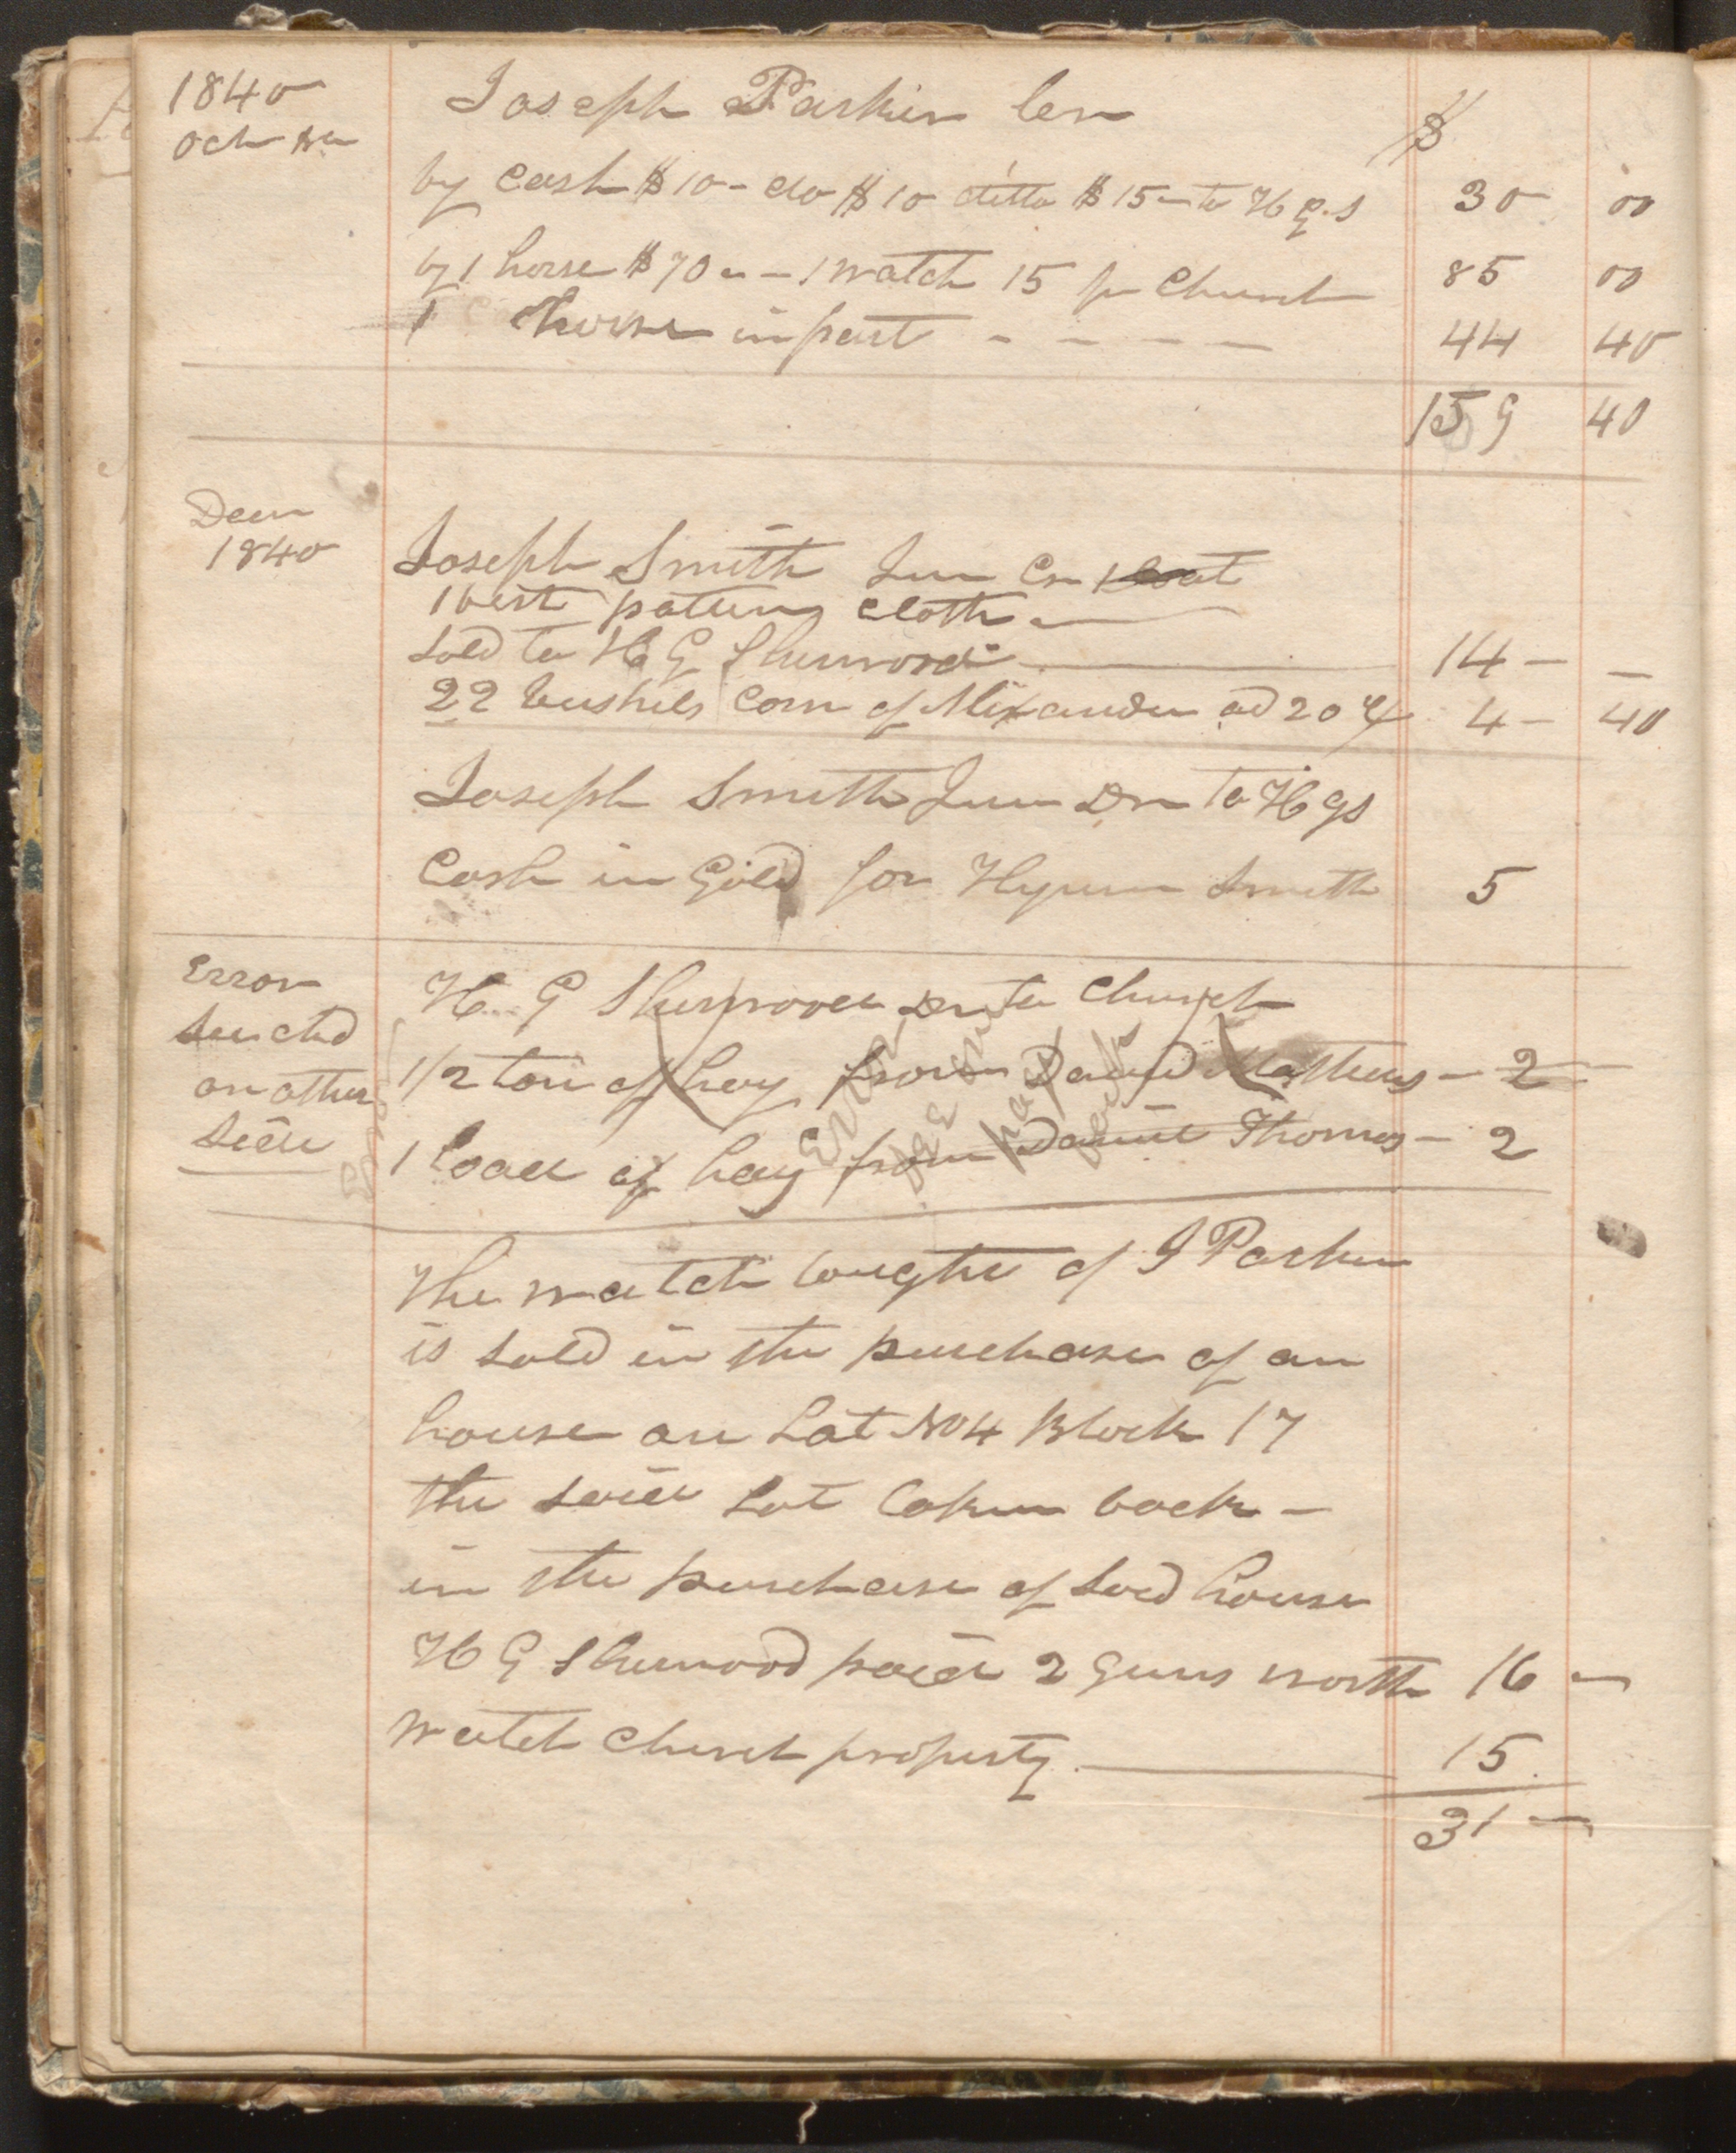 1840 Joseph Parker Cr
Oct $
by cash $10 - do $10 ditto $15 - to H G. S 30 00
by 1 horse $70 - 1 watch 15 pr Church 85 00
1 horse in part - - - - 44 40
159 40
Decr
1840 Joseph Smith Jun Cr 1 Coat
1 vest pattern cloth
sold to H G Sherwood 14 - -
22 bushels corn of Alixander ad 20 4 - 40
Joseph Smith Jun Dr to H G S
Cash in Gold for Hyrum Smith 5
Error H. G Sherwood Dr to Church
on other 1/2 ton of hay from David Mathews - 2
side 1 load of hay from Daniel Thomas - 2
Error
see
page
back
The watch bought of J Parker
is sold in the purchase of an
house on Lot No 4 Block 17
the said Lot taken back -
in the purchase of said house
H G Sherwood paid 2 guns worth 16 -
watch church property 15
31 -